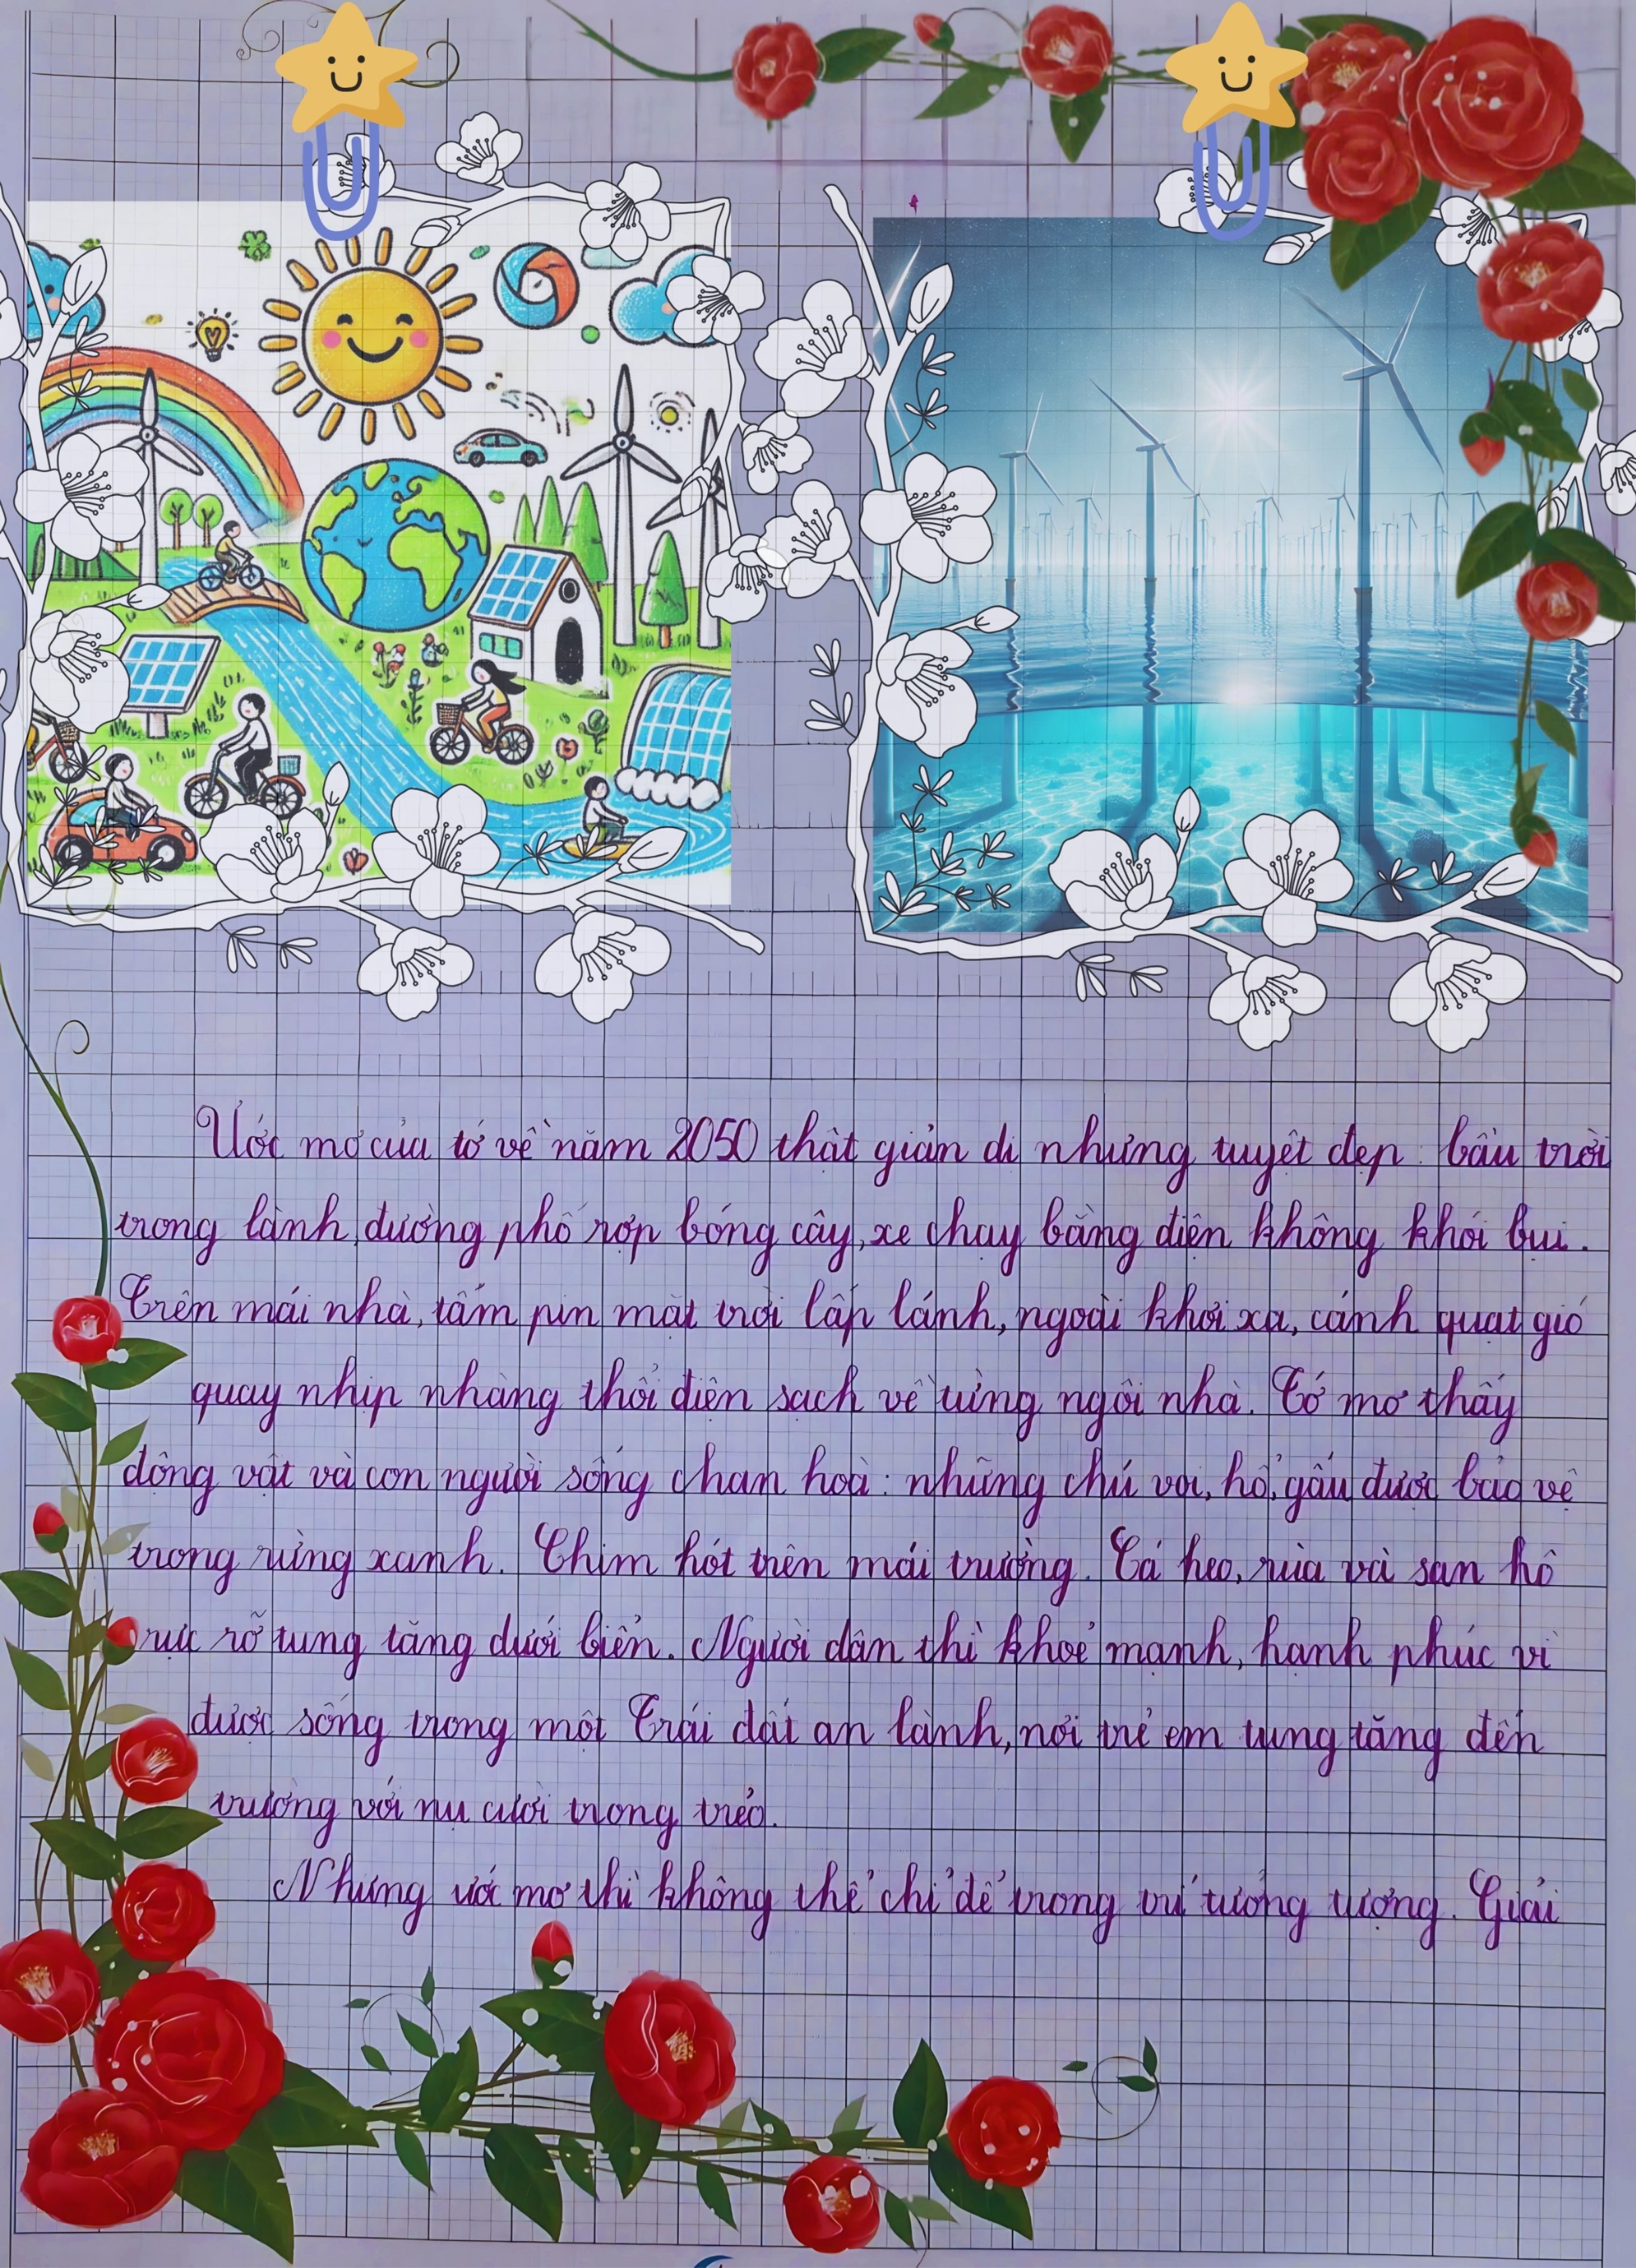 Ước mơ của tớ về năm 2050 thật giản dị nhưng tuyệt đẹp: bầu trời
trong lành, đường phố rợp bóng cây, xe chạy bằng điện không khói bụi.
Trên mái nhà, tấm pin mặt trời lấp lánh, ngoài khơi xa, cánh quạt gió
quay nhịp nhàng thổi điện sạch về từng ngôi nhà. Tớ mơ thấy
động vật và con người sống chan hoà: những chú voi, hổ, gấu được bảo vệ
trong rừng xanh. Chim hót trên mái trường. Cá heo, rùa và san hô
rực rỡ tung tăng dưới biển. Người dân thì khoẻ mạnh, hạnh phúc vì
được sống trong một Trái đất an lành, nơi trẻ em tung tăng đến
trường với nụ cười trong trẻo.
Nhưng ước mơ thì không thể chỉ để trong trí tưởng tượng. Giải